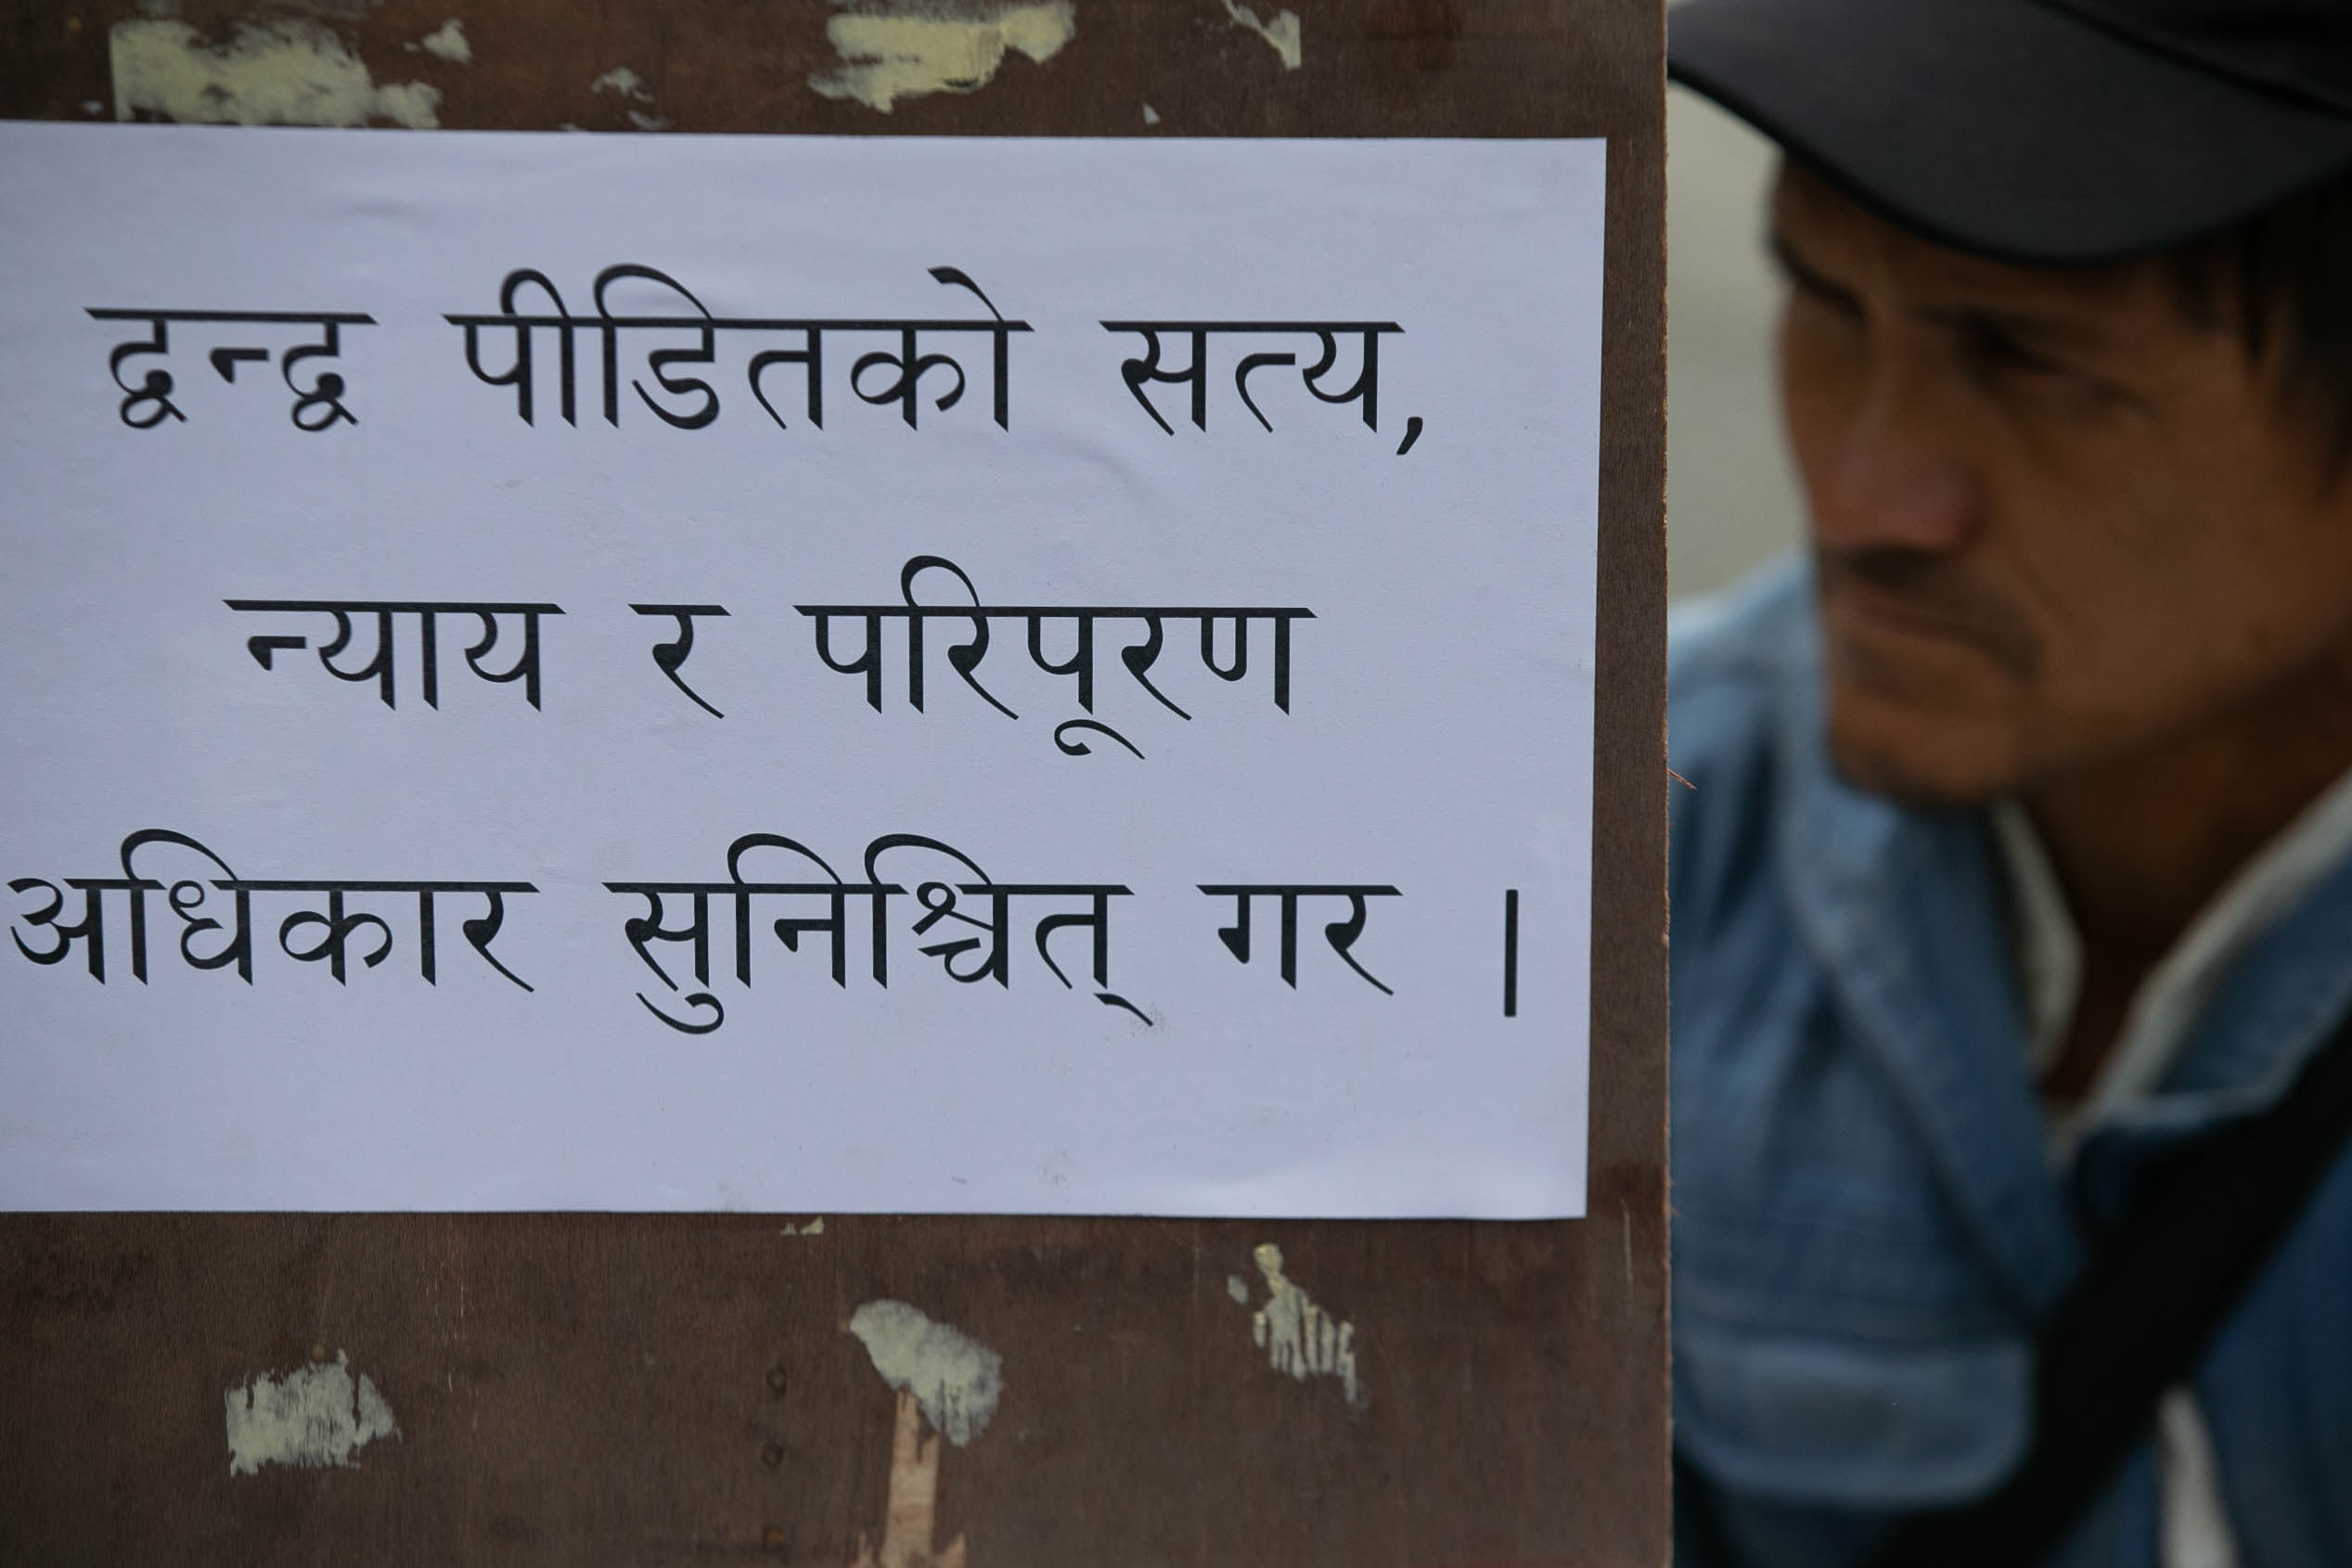 द्वन्द्व पीडितको सत्य,
न्याय र परिपूरण
अधिकार सुनिश्चित् गर ।